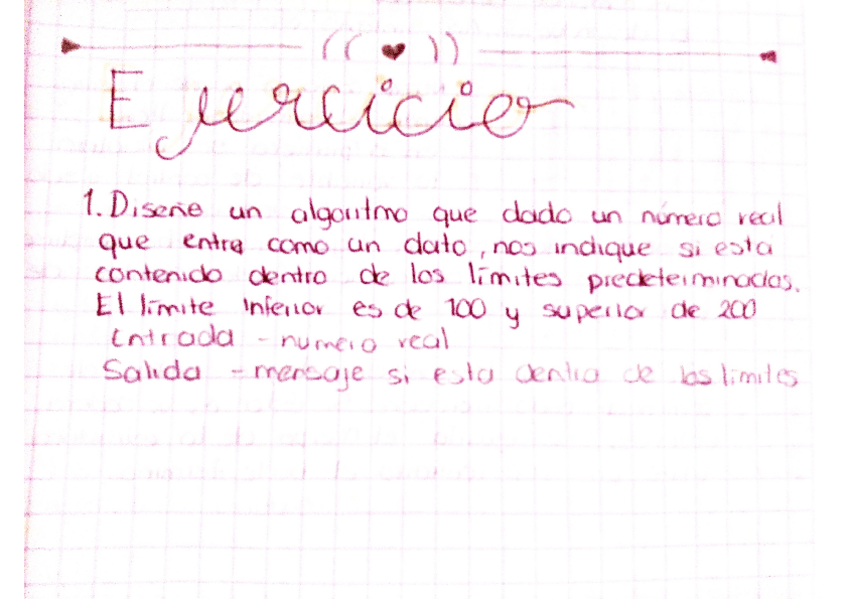 Ejercicio
1. Diseñe un algoritmo que dado un número real
que entre como un dato, nos indique si esta
contenido dentro de los límites predeterminados.
El límite inferior es de 100 y superior de 200
Entrada - numero real
Salida - mensaje si esta dentro de los limites